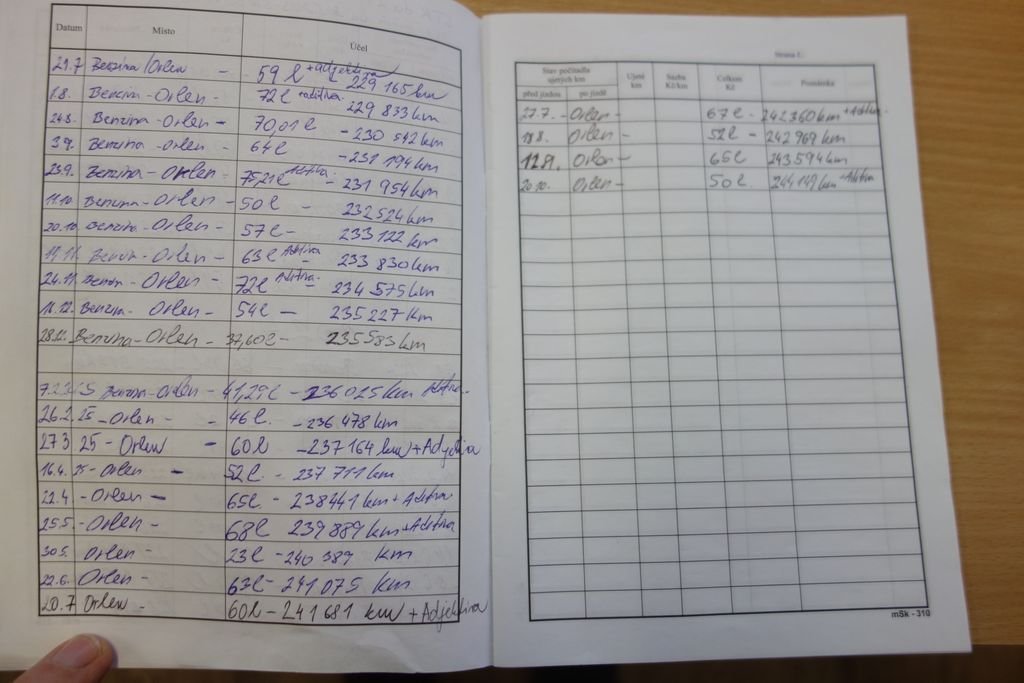 Datum Místo Účel
29.7 Benzina/Orlen - 59 l +adjektiva 229 165 km
1.8. Benzina-Orlen - 72 l +aditiva. 229 833 km
24.8. Benzina-Orlen - 70,01 l - 230 542 km
3.9. Benzina-Orlen - 64 l - 231 194 km
23.9. Benzina-Orlen - 75,21 l Aditiva - 231 954 km
11.10. Benzina-Orlen - 50 l - 232 524 km
20.10. Benzina-Orlen - 57 l - 233 122 km
11. Benzina-Orlen - 63 l Aditiva - 233 830 km
24.11. Benzina-Orlen - 72 l Aditiva - 234 575 km
11.12. Benzina-Orlen - 54 l - 235 227 km
28.12. Benzina-Orlen - 37,60 l - 235 583 km
Benzina-Orlen - 41,29 l - 236 025 km Aditiva.
26.2.25 - Orlen - - 46 l. - 236 478 km
27.3.25 - Orlen - 60 l - 237 164 km + Adjektiva
16.4.25 - Orlen - 52 l. - 237 711 km
22.4. - Orlen - 65 l. - 238 441 km + Aditiva
25.5. - Orlen - 68 l 239 889 km + Aditiva
30.5. Orlen - 23 l - 240 389 km
22.6. Orlen - 63 l - 241 075 km
20.7 Orlen - 60 l - 241 681 km + Adjektiva
Strana č.
Stav počítadla ujetých km Ujeté km Sazba Kč/km Celkem Kč Poznámka
před jízdou po jízdě
27.7. - Orlen - 67 l - 242 360 km + Aditiva
8. Orlen - 52 l - 242 969 km
12.9. Orlen - 65 l 243 594 km
20.10. Orlen - 50 l. 244 149 km + Aditiva
mSk - 310